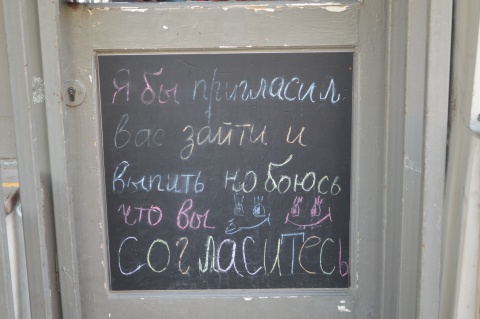 Я бы пригласил
вас зайти и
выпить но боюсь
что вы
согласитесь